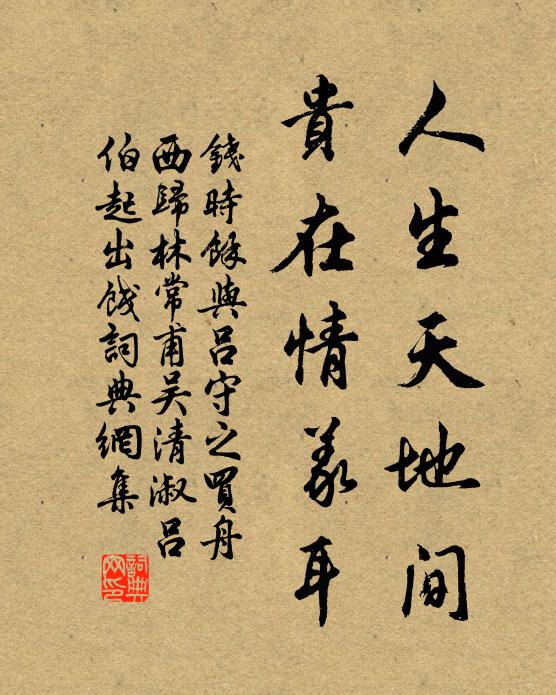 人生天地間
貴在情義耳
錢時餘與呂守之買舟
西歸林常甫吴清淑呂
伯起出餞詞典網集
詞典网印